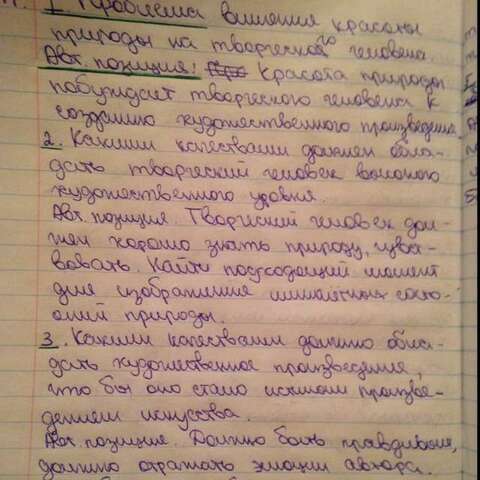 1. Проблема влияния красоты
природы на творческого человека.
Авт. позиция: Красота природы
побуждает творческого человека к
созданию художественного произведения.
2. Какими качествами должен обла-
дать творческий человек высокого
художественного уровня.
Авт. позиция. Творческий человек дол-
жен хорошо знать природу, чувст-
вовать. Найти подходящий момент
для изображения состо-
яний природы.
3. Какими качествами должно обла-
дать художественное произведение,
что бы оно стало истинным произве-
дением искусства.
Авт. позиция. Должно быть правдивым,
должно отражать эмоции автора.